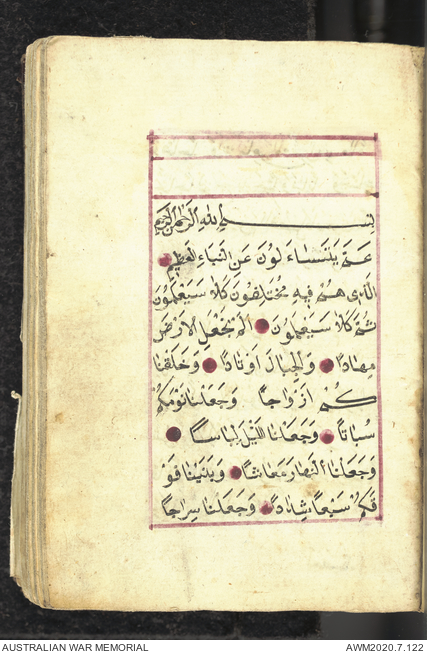 بسم الله الرحمن الرحيم
عَمَّ يَتَسَاءَلُونَ عَنِ النَّبَاءِ العَظِيمِ
الَّذِى هُمْ فِيهِ مُخْتَلِفُونَ كَلَّا سَيَعْلَمُونَ
ثُمَّ كَلَّا سَيَعْلَمُونَ اَلَمْ نَجْعَلِ الْاَرْضَ
مِهَادًا وَالْجِبَالَ اَوْتَادًا وَخَلَقْنَا
كُمْ اَزْوَاجًا وَجَعَلْنَا نَوْمَكُمْ
سُبَاتًا وَجَعَلْنَا اللَّيْلَ لِبَاسًا
وَجَعَلْنَا النَّهَارَ مَعَاشًا وَبَنَيْنَا فَوْ
قَكُمْ سَبْعًا شِدَادًا وَجَعَلْنَا سِرَاجًا
AUSTRALIAN WAR MEMORIAL AWM2020.7.122